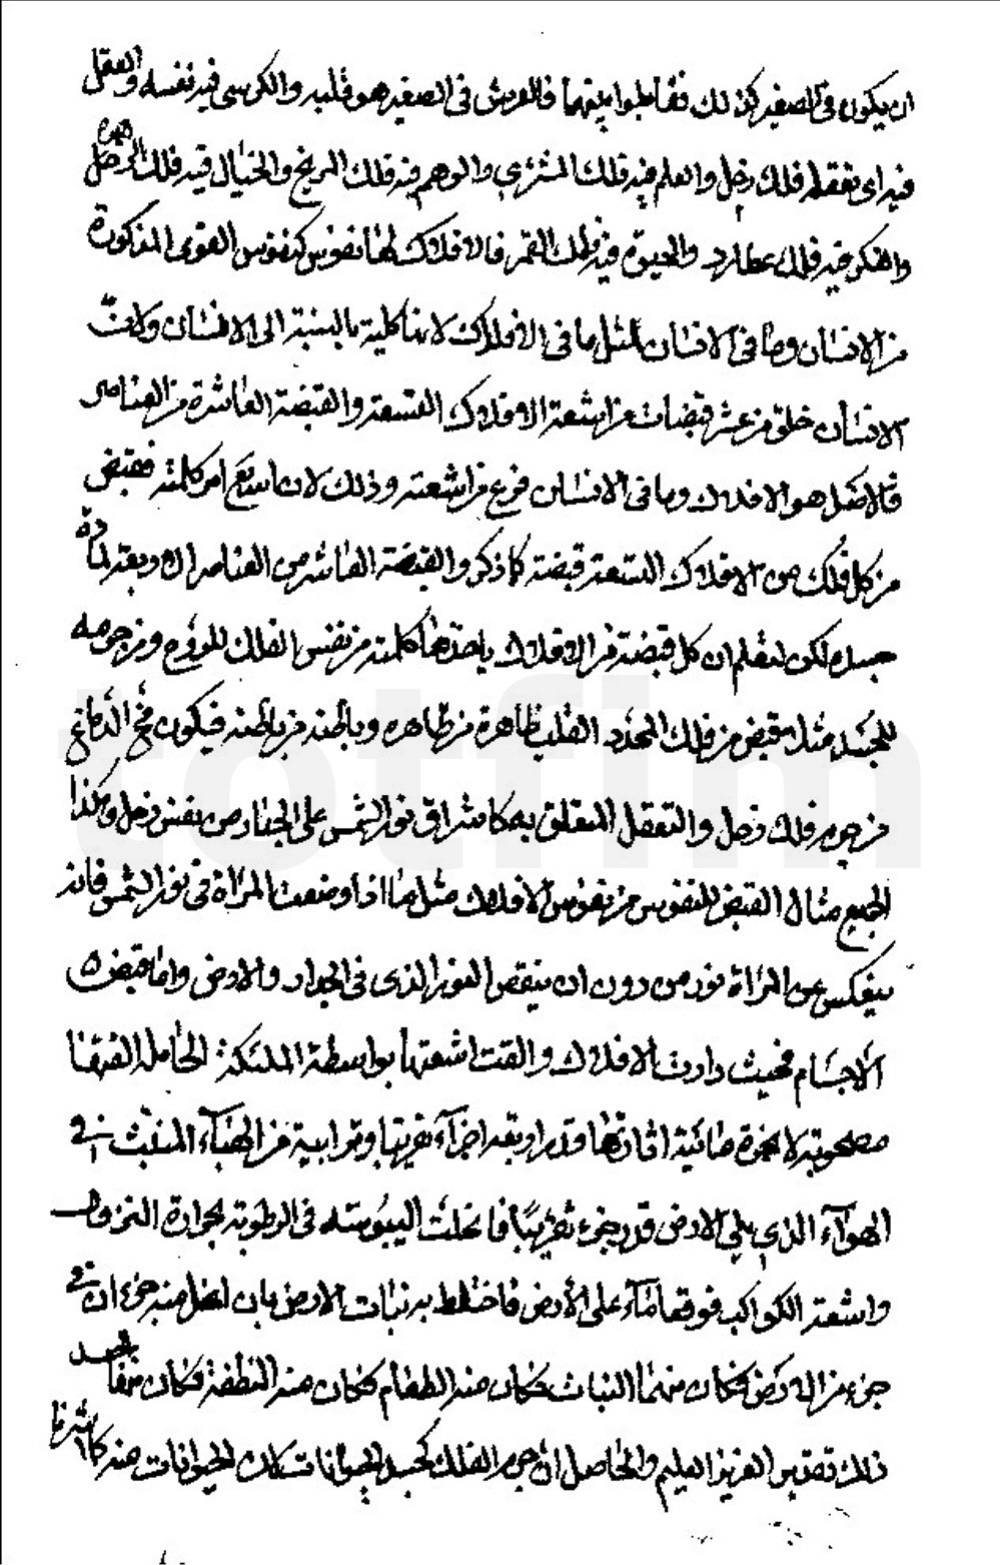 ان يكون في الصغير كذلك فقابلوا بينهما فالعرش في الصغير هو قلبه والكرسي فيه نفسه والعقل
فيه اى تعقله فلك زحل والعلم فيه فلك المشتري والوهم فيه فلك المريخ والخيال فيه فلك الزهرة
والفكر فيه فلك عطارد والحيوة فيه فلك القمر فالافلاك لها نفوس كنفوس القوى المذكورة
من الانسان وما في الانسان مثل ما في الافلاك لانها كلية بالنسبة الى الانسان ولان
الانسان خلق من عشر قبضات من اشعة الافلاك التسعة والقبضة العاشرة من العناصر
فالاصل هو الافلاك وما في الانسان فرع من اشعته وذلك لان امر كلمته فقبض
من كل فلك من الافلاك التسعة قبضة كما ذكر والقبضة العاشر من العناصر الاربعة لمادة
جسده لكن لتعلم ان كل قبضة من الافلاك ياخذها كلمته من نفس الفلك للروح ومن جرمه
للجسد مثلا قبض من فلك المحدد القلب ظاهرة من ظاهره وباطنه من باطنه فيكون مخ الدماغ
من جرم فلك زحل والتعقل المتعلق به كاشراق نور الشمس على الجدار من نفس زحل وهكذا
الجميع مثال القبض للنفوس من نفوس الافلاك مثل ما اذا وضعت المرآة في نور الشمس فانه
ينعكس عن المرآة نور من دون ان ينقص النور الذي في الجدار والارض واما قبض
الاجسام فحيث دارت الافلاك والقت اشعتها بواسطة الملئكة الحاملة
مصحوبة لابخرة مائية اثارتها قدر اربعة اجزآء تقريبا وترابية من الهبآء المنبث في
الهوآء الذي يلي الارض قدر جزء تقريبا فانحلت اليبوسة في الرطوبة بحرارة
واشعة الكواكب فوقع مآء على الأرض فاختلط به نبات الارض بان انحل منه جزءان في
جزء من الارض فكان منهما النبات فكان منه الطعام فكان منه النطفة فكان منها الجسد
ذلك تقدير العزيز العليم والحاصل ان جرم الفلك كجسد الحيوانات
totfim